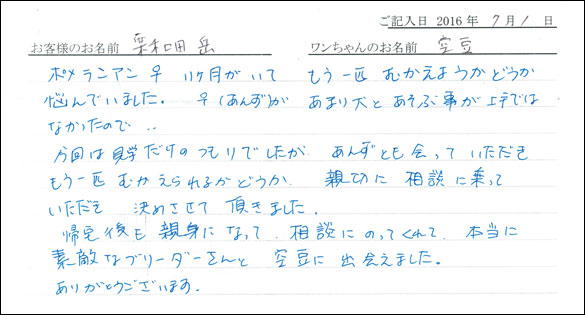 ご記入日 2016年 7月1日
お客様のお名前 栗和田 岳 ワンちゃんのお名前 空豆
ポメラニアン♀ 11ヶ月がいて もう一匹 むかえようかどうか
悩んでいました。♀(あんず)が あまり犬とあそぶ事が上手では
なかったので‥
今回は見学だけのつもりでしたが、あんずとも会っていただき
もう一匹 むかえられるかどうか 親切に 相談に乗って
いただき 決めさせて 頂きました。
帰宅後も 親身になって、相談にのってくれて、本当に
素敵なブリーダーさんと 空豆に 出会えました。
ありがとうございます。